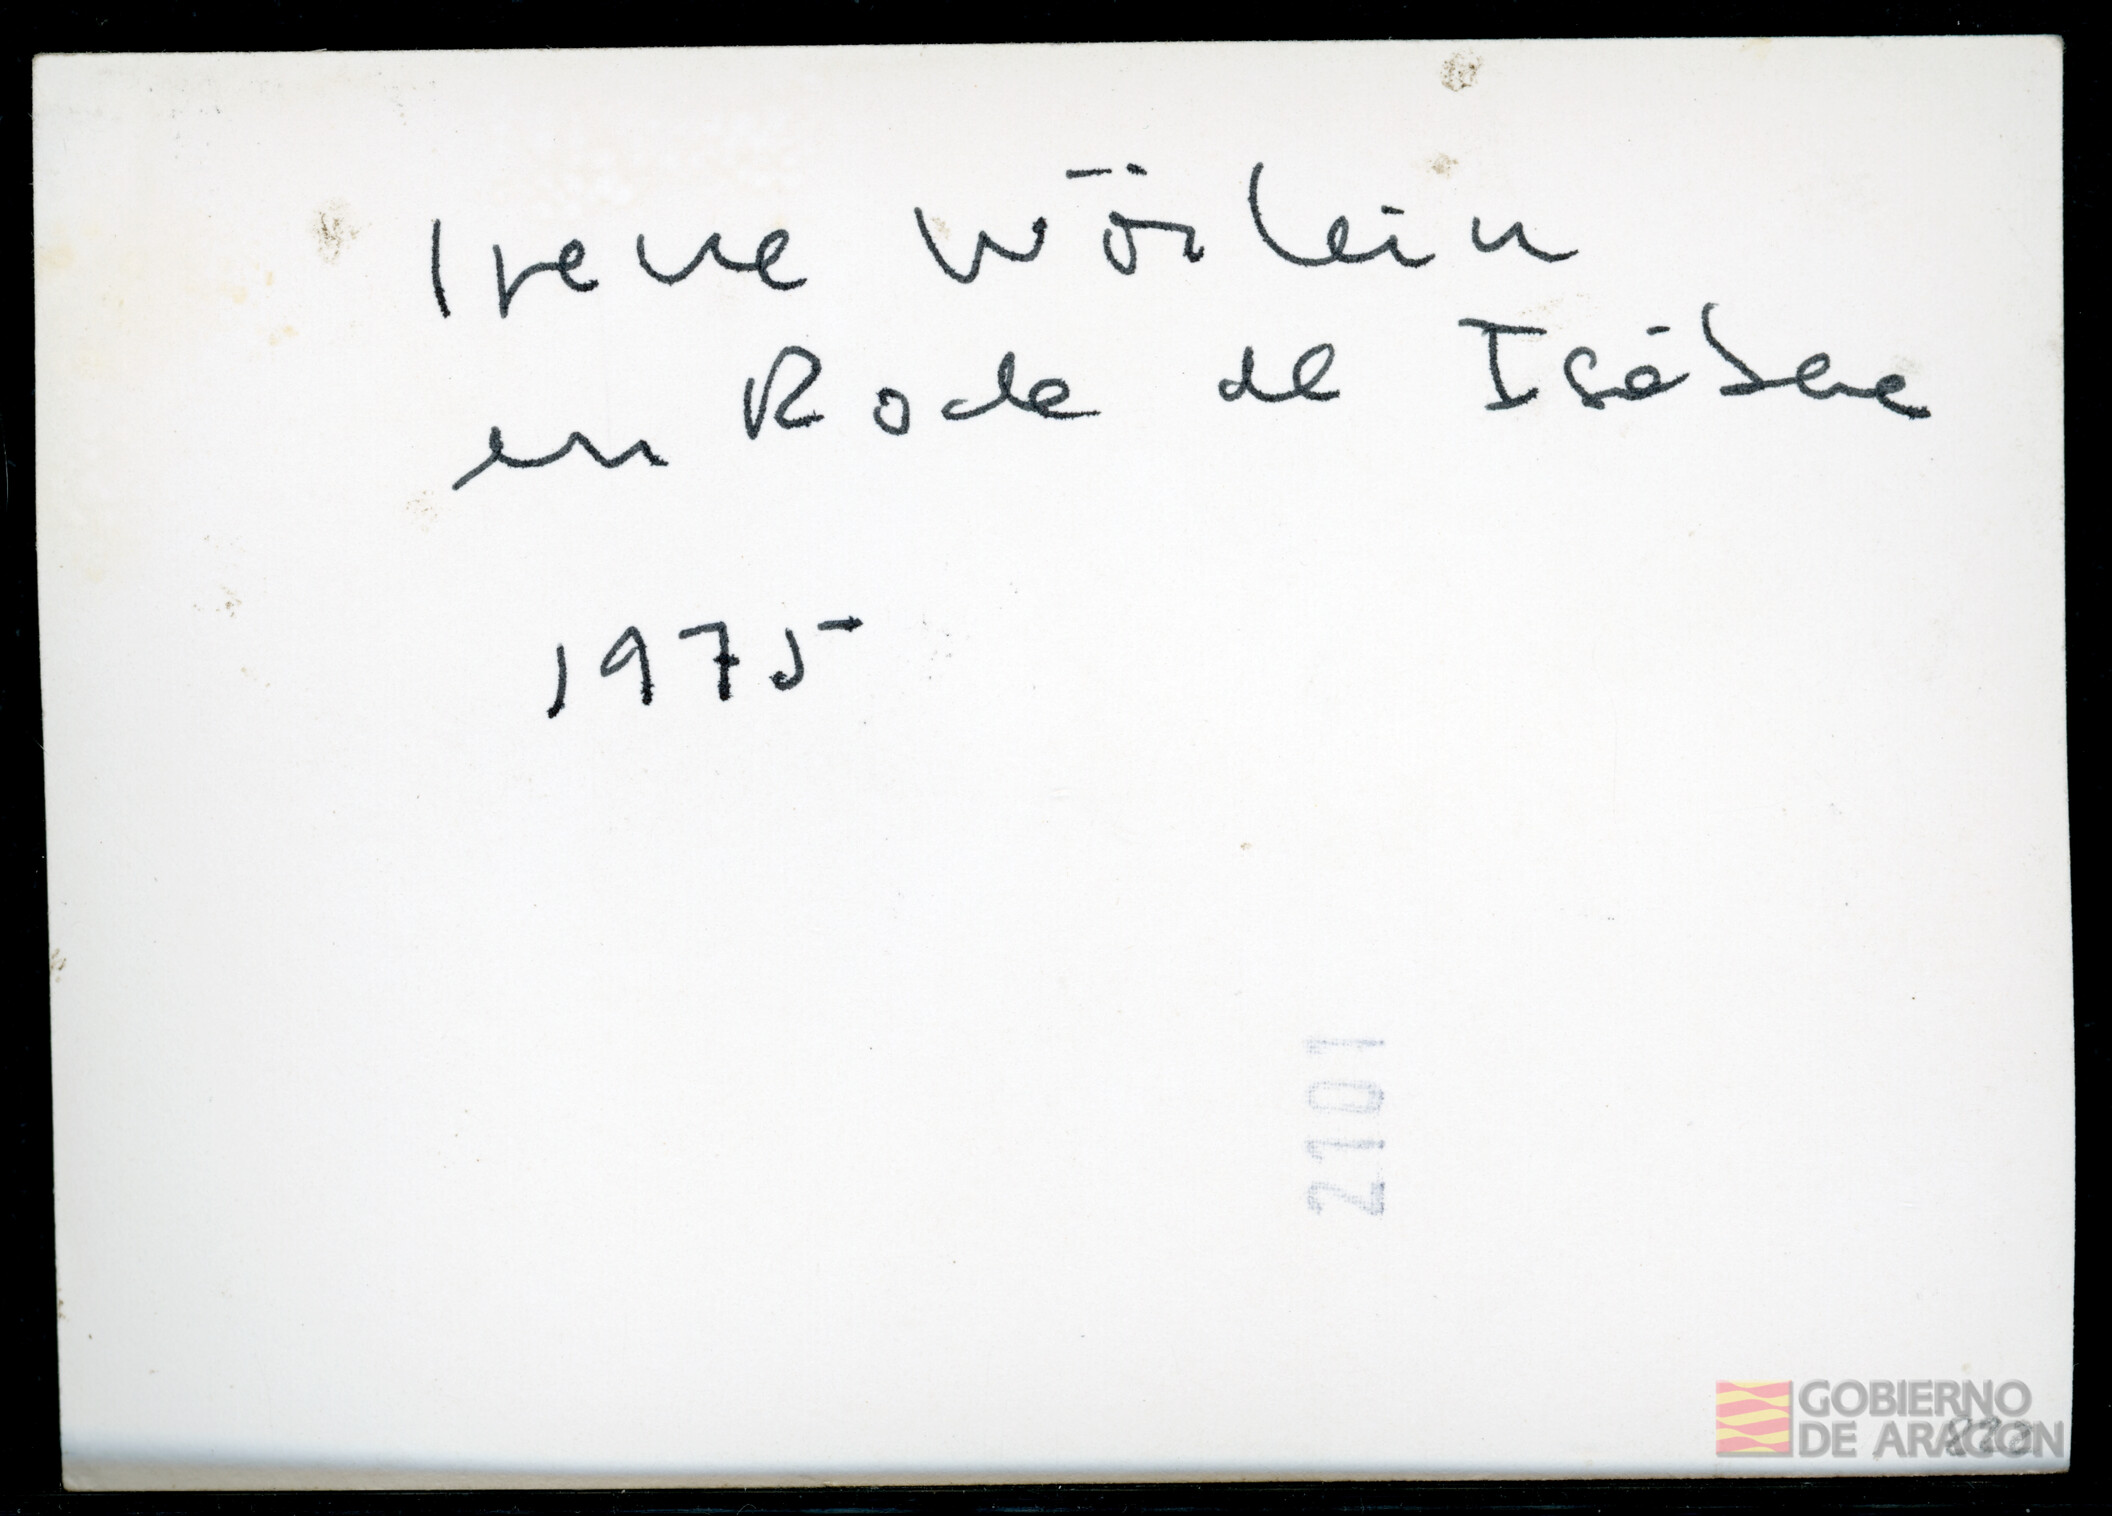 Irene Wörlein
en Roda de Isábena
1975
2101
GOBIERNO
DE ARAGON